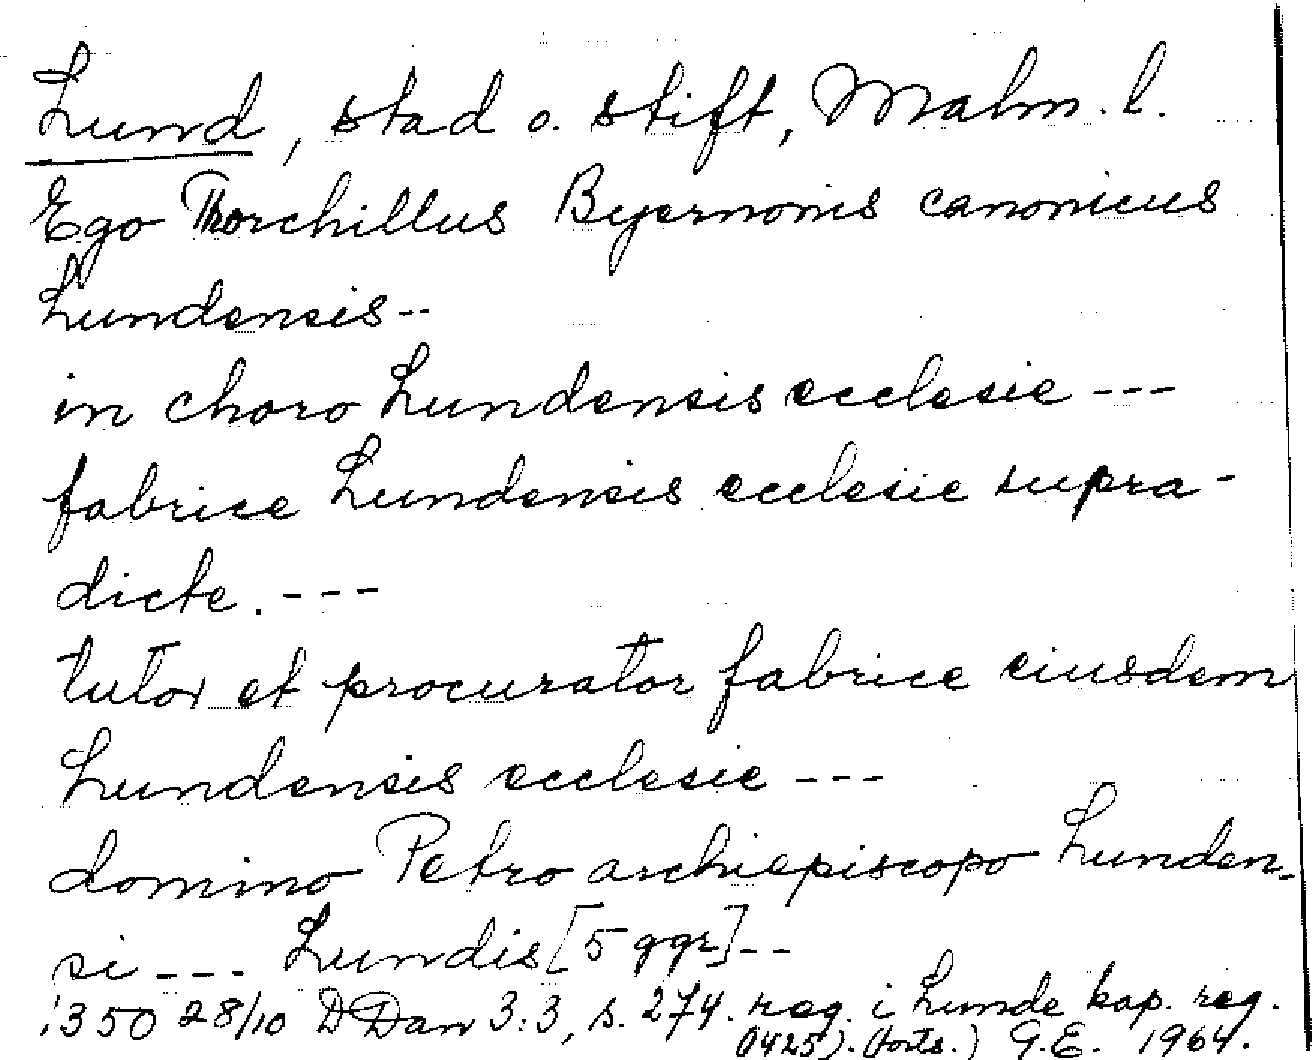 Lund, stad o. stift, Malm. l.
Ego Thorchillus Byernonis canonicus
Lundensis--
in choro Lundensis ecclesie ---
fabrice Lundensis ecclesie supra-
dicte. ---
tutor et procurator fabrice eiusdem
Lundensis ecclesie ---
domino Petro archiepiscopo Lunden-
si --- Lundis [5 ggr] --
1350 28/10 D Dan 3:3, s. 274. reg. i Lunde kap. reg.
(1425). (forts.) G.E. 1964.